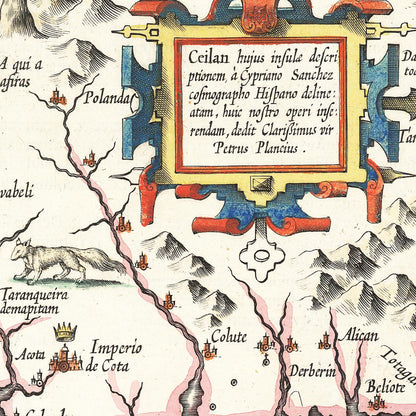 A qui a
afiras
Polanda
Ceilan hujus insulæ descri
ptionem, à Cypriano Sanchez
cosmographo Hispano deline:
atam, huic nostro operi inse:
rendam, dedit Clarissimus vir
Petrus Plancius.
vabeli
Taranqueira
demapitam
Acota
Imperio
de Cota
Colute
Alican
Derberin
Beliote